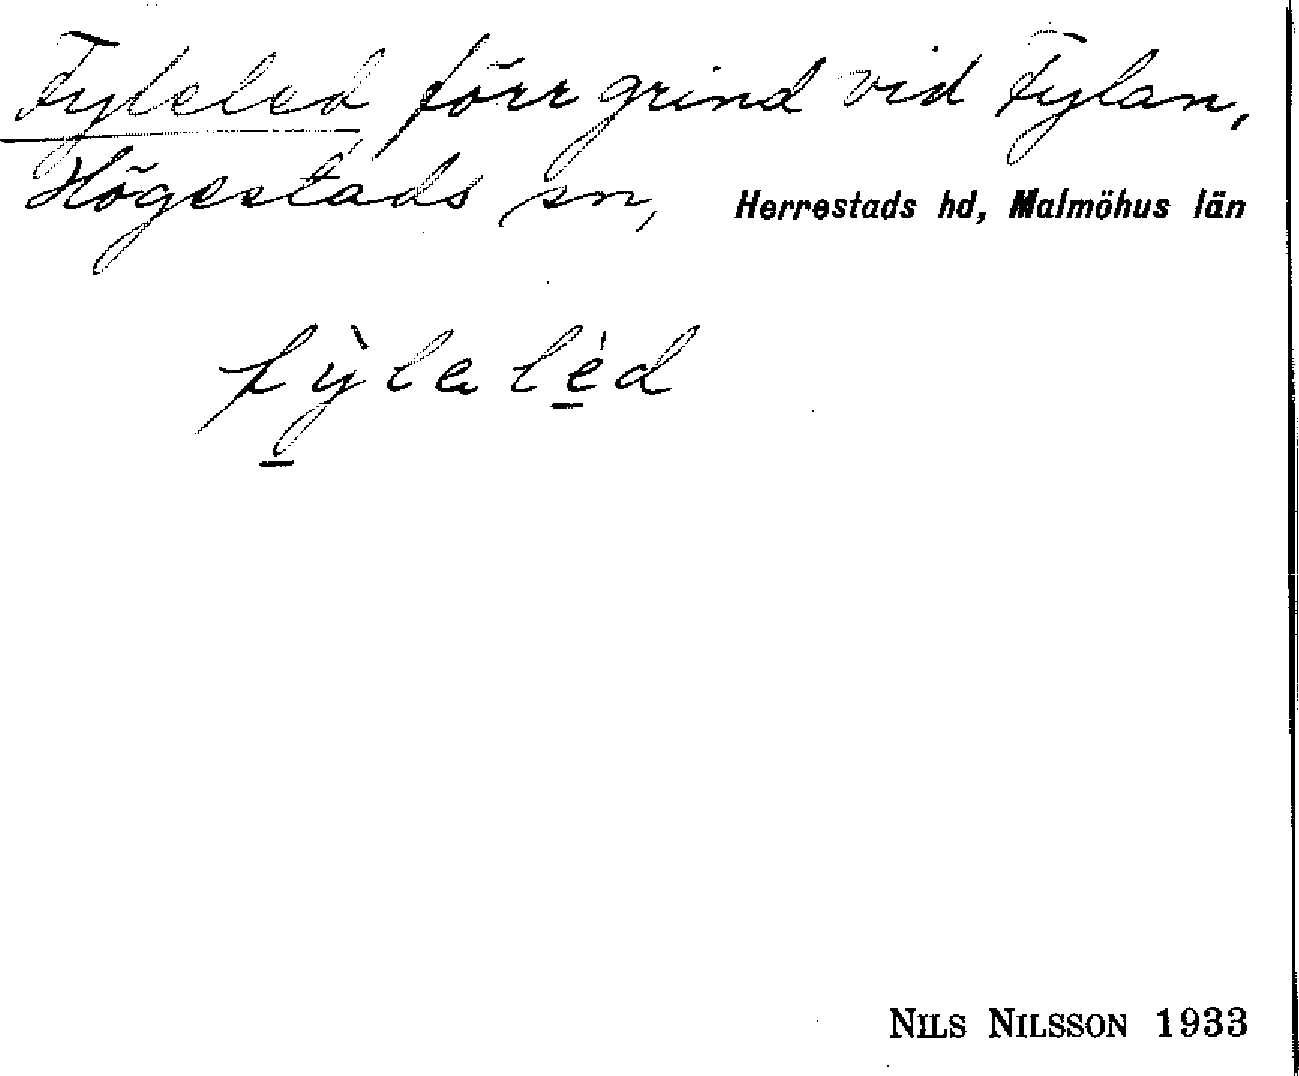 Fyleled förr grind vid Fylan,
Högestads sn, Herrestads hd, Malmöhus län
fỳlalèd
NILS NILSSON 1933